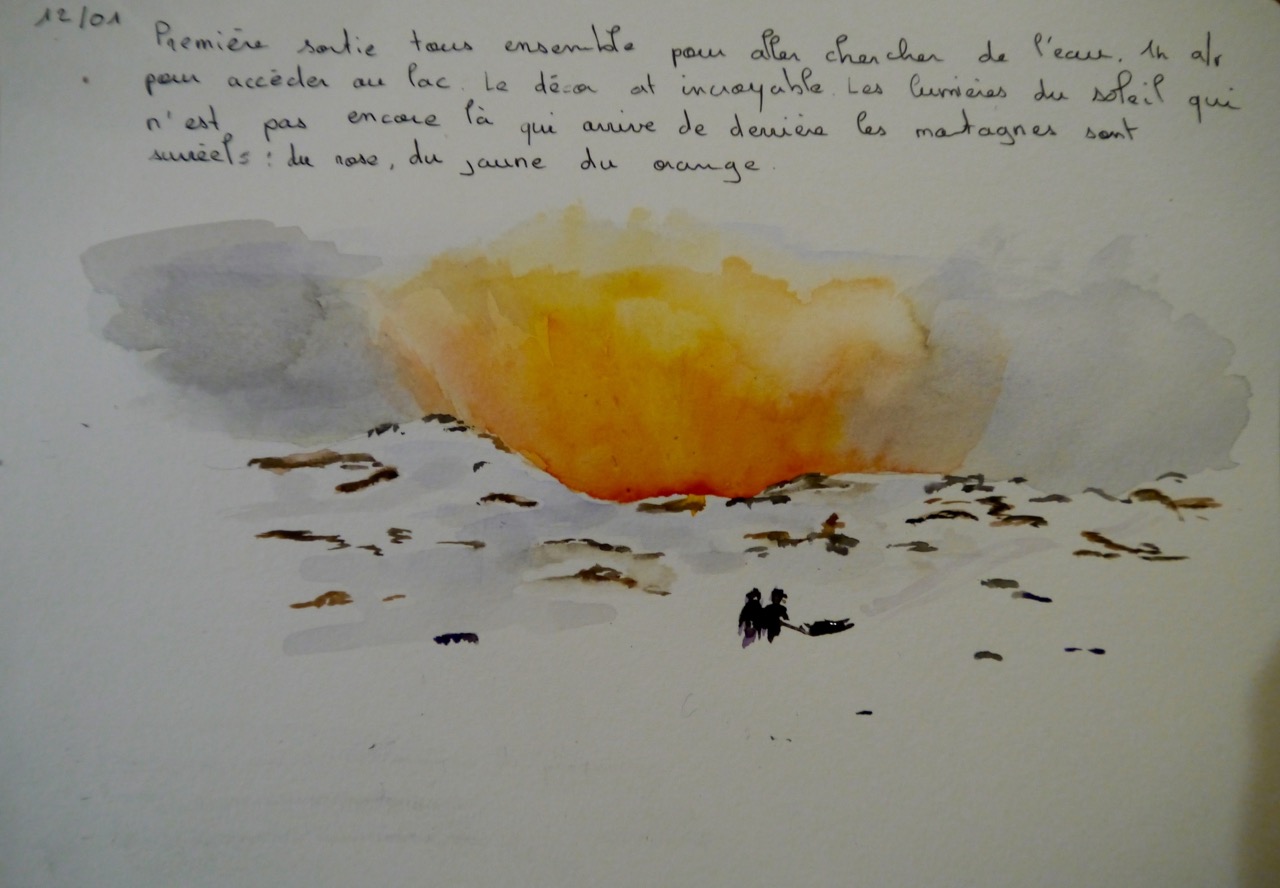 12/01
Première sortie tous ensemble pour aller chercher de l'eau. 1h a/r
pour accéder au lac. Le décor est incroyable. Les lumières du soleil qui
n'est pas encore là qui arrive de derrière les montagnes sont
surréels : du rose, du jaune du orange.